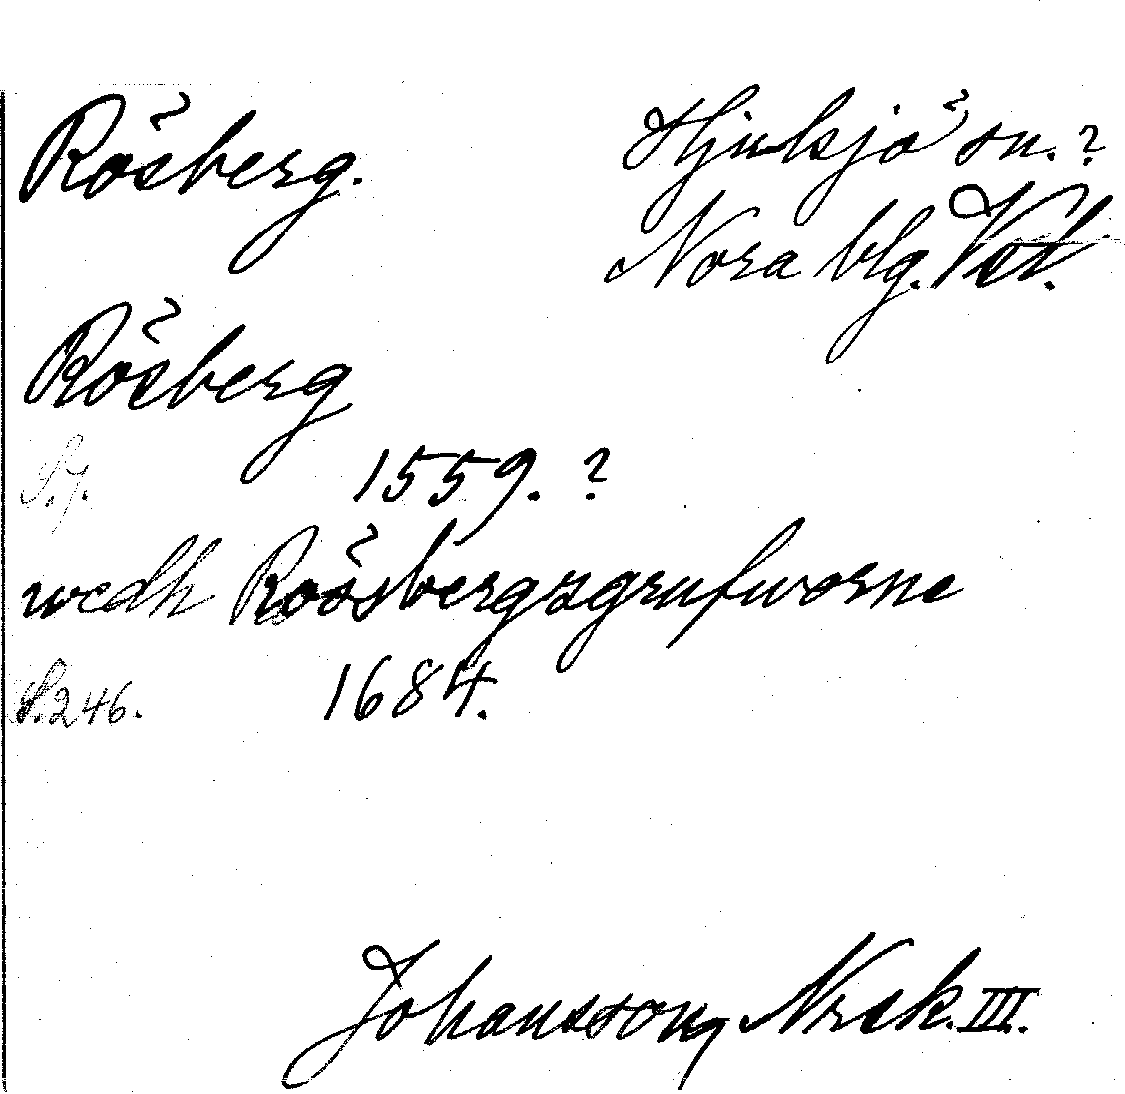 Rösberg.
Hjulsjö sn.?
Nora blg. Vstl.
Rösberg
S. 7. 1559.?
wedh Roösbergzgrufworne
S. 246. 1684.
Johansson, Nrsk. III.